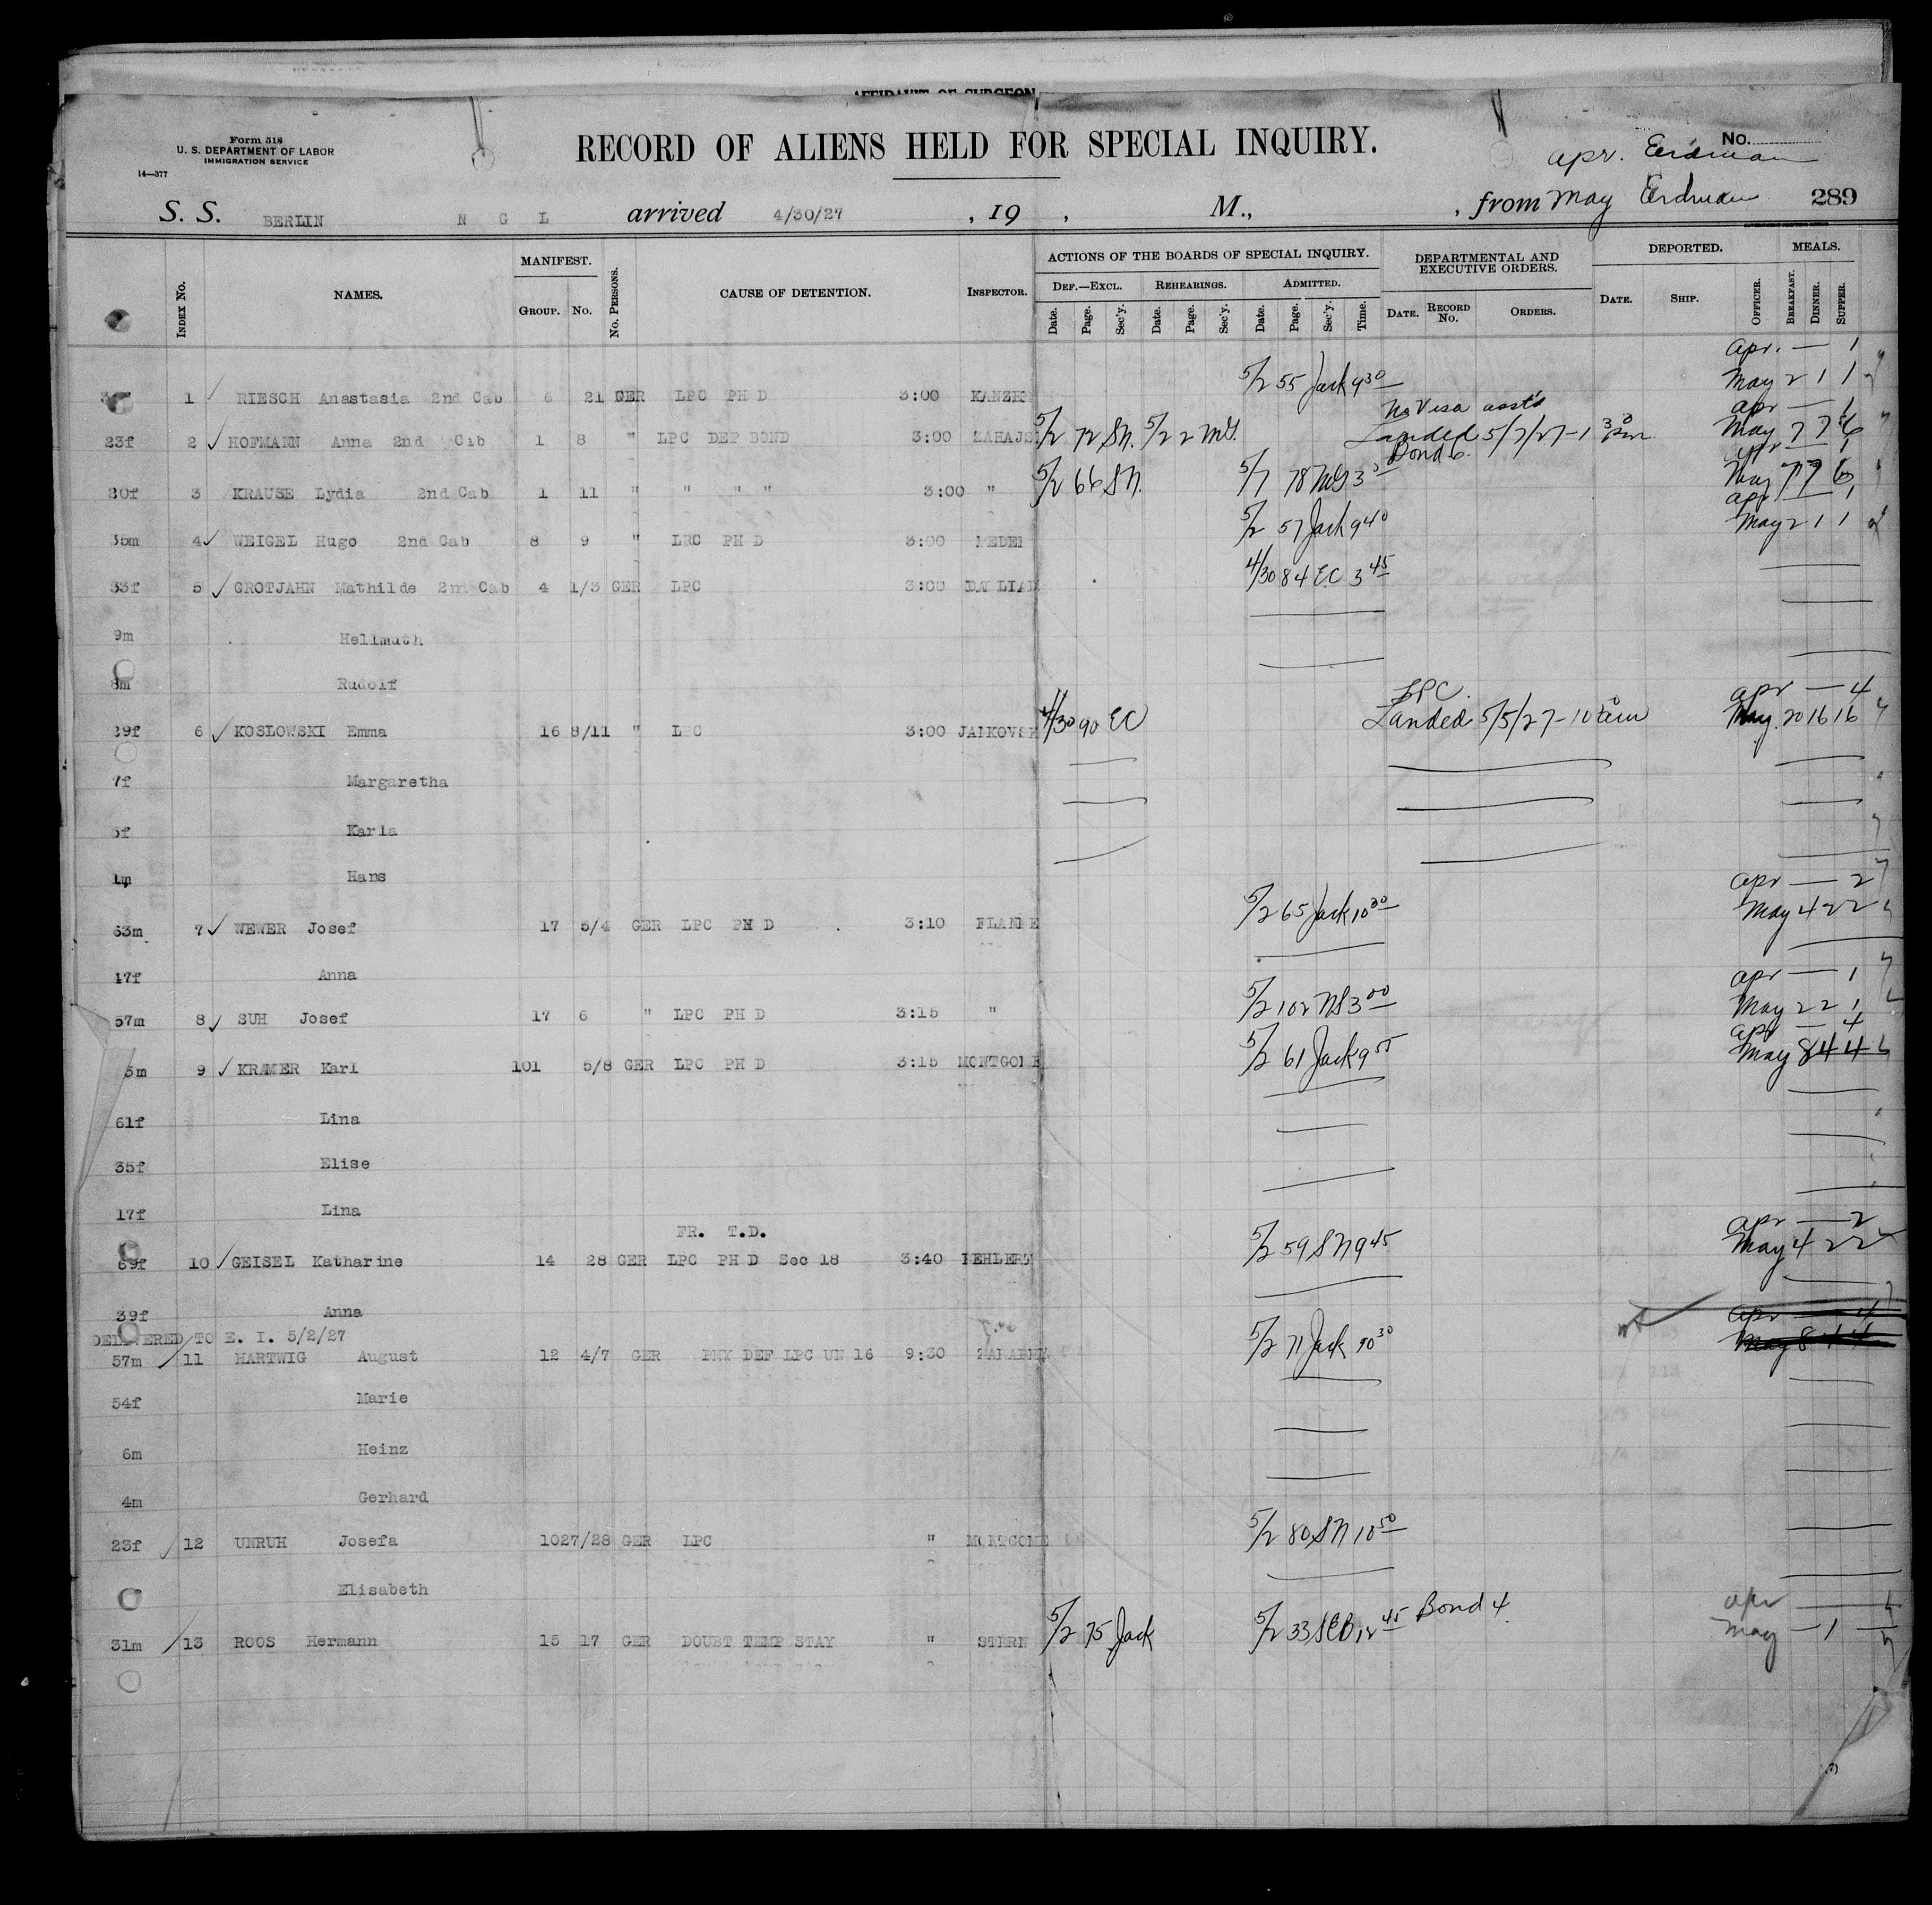 AFFIDAVIT OF SURGEON
Form 518
U. S. DEPARTMENT OF LABOR
IMMIGRATION SERVICE
14—377
RECORD OF ALIENS HELD FOR SPECIAL INQUIRY.
No.
Apr. Erdman
S. S. BERLIN N G L arrived 4/30/27 , 19 , M., , from May Erdman 289
INDEX No. NAMES. MANIFEST. GROUP. No. No. PERSONS. CAUSE OF DETENTION. INSPECTOR. ACTIONS OF THE BOARDS OF SPECIAL INQUIRY. DEPARTMENTAL AND EXECUTIVE ORDERS. DEPORTED. MEALS.
DEF.—EXCL. REHEARINGS. ADMITTED.
Date. Page. Sec'y. Date. Page. Sec'y. Date. Page. Sec'y. Time. DATE. RECORD No. ORDERS. DATE. SHIP. OFFICER. BREAKFAST. DINNER. SUPPER.
Apr. — 1
1 RIESCH Anastasia 2nd Cab 6 21 GER LPC PH D 3:00 5/2 55 Jack 9 30 May 2 1 1
No Visa Apr — 1
23f 2 HOFMANN Anna 2nd Cab 1 8 " LPC DEP BOND 3:00 5/2 72 SN. 5/2 2 Landed 5/7/27 - 1 May 7 7 6
Bond 6. Apr — 1
20f 3 KRAUSE Lydia 2nd Cab 1 11 " " " " 3:00 " 5/2 66 SN. 5/7 78 May 7 7 6
Apr — 1
35m 4 WEIGEL Hugo 2nd Cab 8 9 " LPC PH D 3:00 5/2 57 Jack 9 40 May 2 1 1
33f 5 GROTJAHN Mathilde 2nd Cab 4 1/3 GER LPC 3:00 4/30 84 EC 3 45
9m Hellmuth
8m Rudolf
LPC. Apr — 4
39f 6 KOSLOWSKI Emma 16 8/11 " LPC 3:00 4/30 90 EC Landed 5/5/27 - 10 am May 20 16 16
7f Margaretha
5f Karla
Hans
Apr — 2
63m 7 WEWER Josef 17 5/4 GER LPC PH D 3:10 5/2 65 Jack 10 30 May 4 2 2
17f Anna
Apr — 1
57m 8 SUH Josef 17 6 " LPC PH D 3:15 " 5/2 102 NS 3 00 May 2 2 1
Apr — 4
9 KRAMER Karl 101 5/8 GER LPC PH D 3:15 MONTGOME 5/2 61 Jack 9 55 May 8 4 4
61f Lina
35f Elise
17f Lina
FR. T.D. Apr — 2
69f 10 GEISEL Katharine 14 28 GER LPC PH D Sec 18 3:40 5/2 59 SN 9 45 May 4 2 2
39f Anna
DELIVERED TO E. I. 5/2/27 Apr — 4
57m 11 HARTWIG August 12 4/7 GER PHY DEF LPC UN 16 9:30 5/2 71 Jack 10 30 May 8 4 4
54f Marie
6m Heinz
4m Gerhard
23f 12 UNRUH Josefa 1027/28 GER LPC " MONTGOME 5/2 80 SN 10 50
Elisabeth
Apr
31m 13 ROOS Hermann 15 17 GER DOUBT TEMP STAY " STERN 5/2 75 Jack 5/2 33 SEB 12 45 Bond 4 May — 1